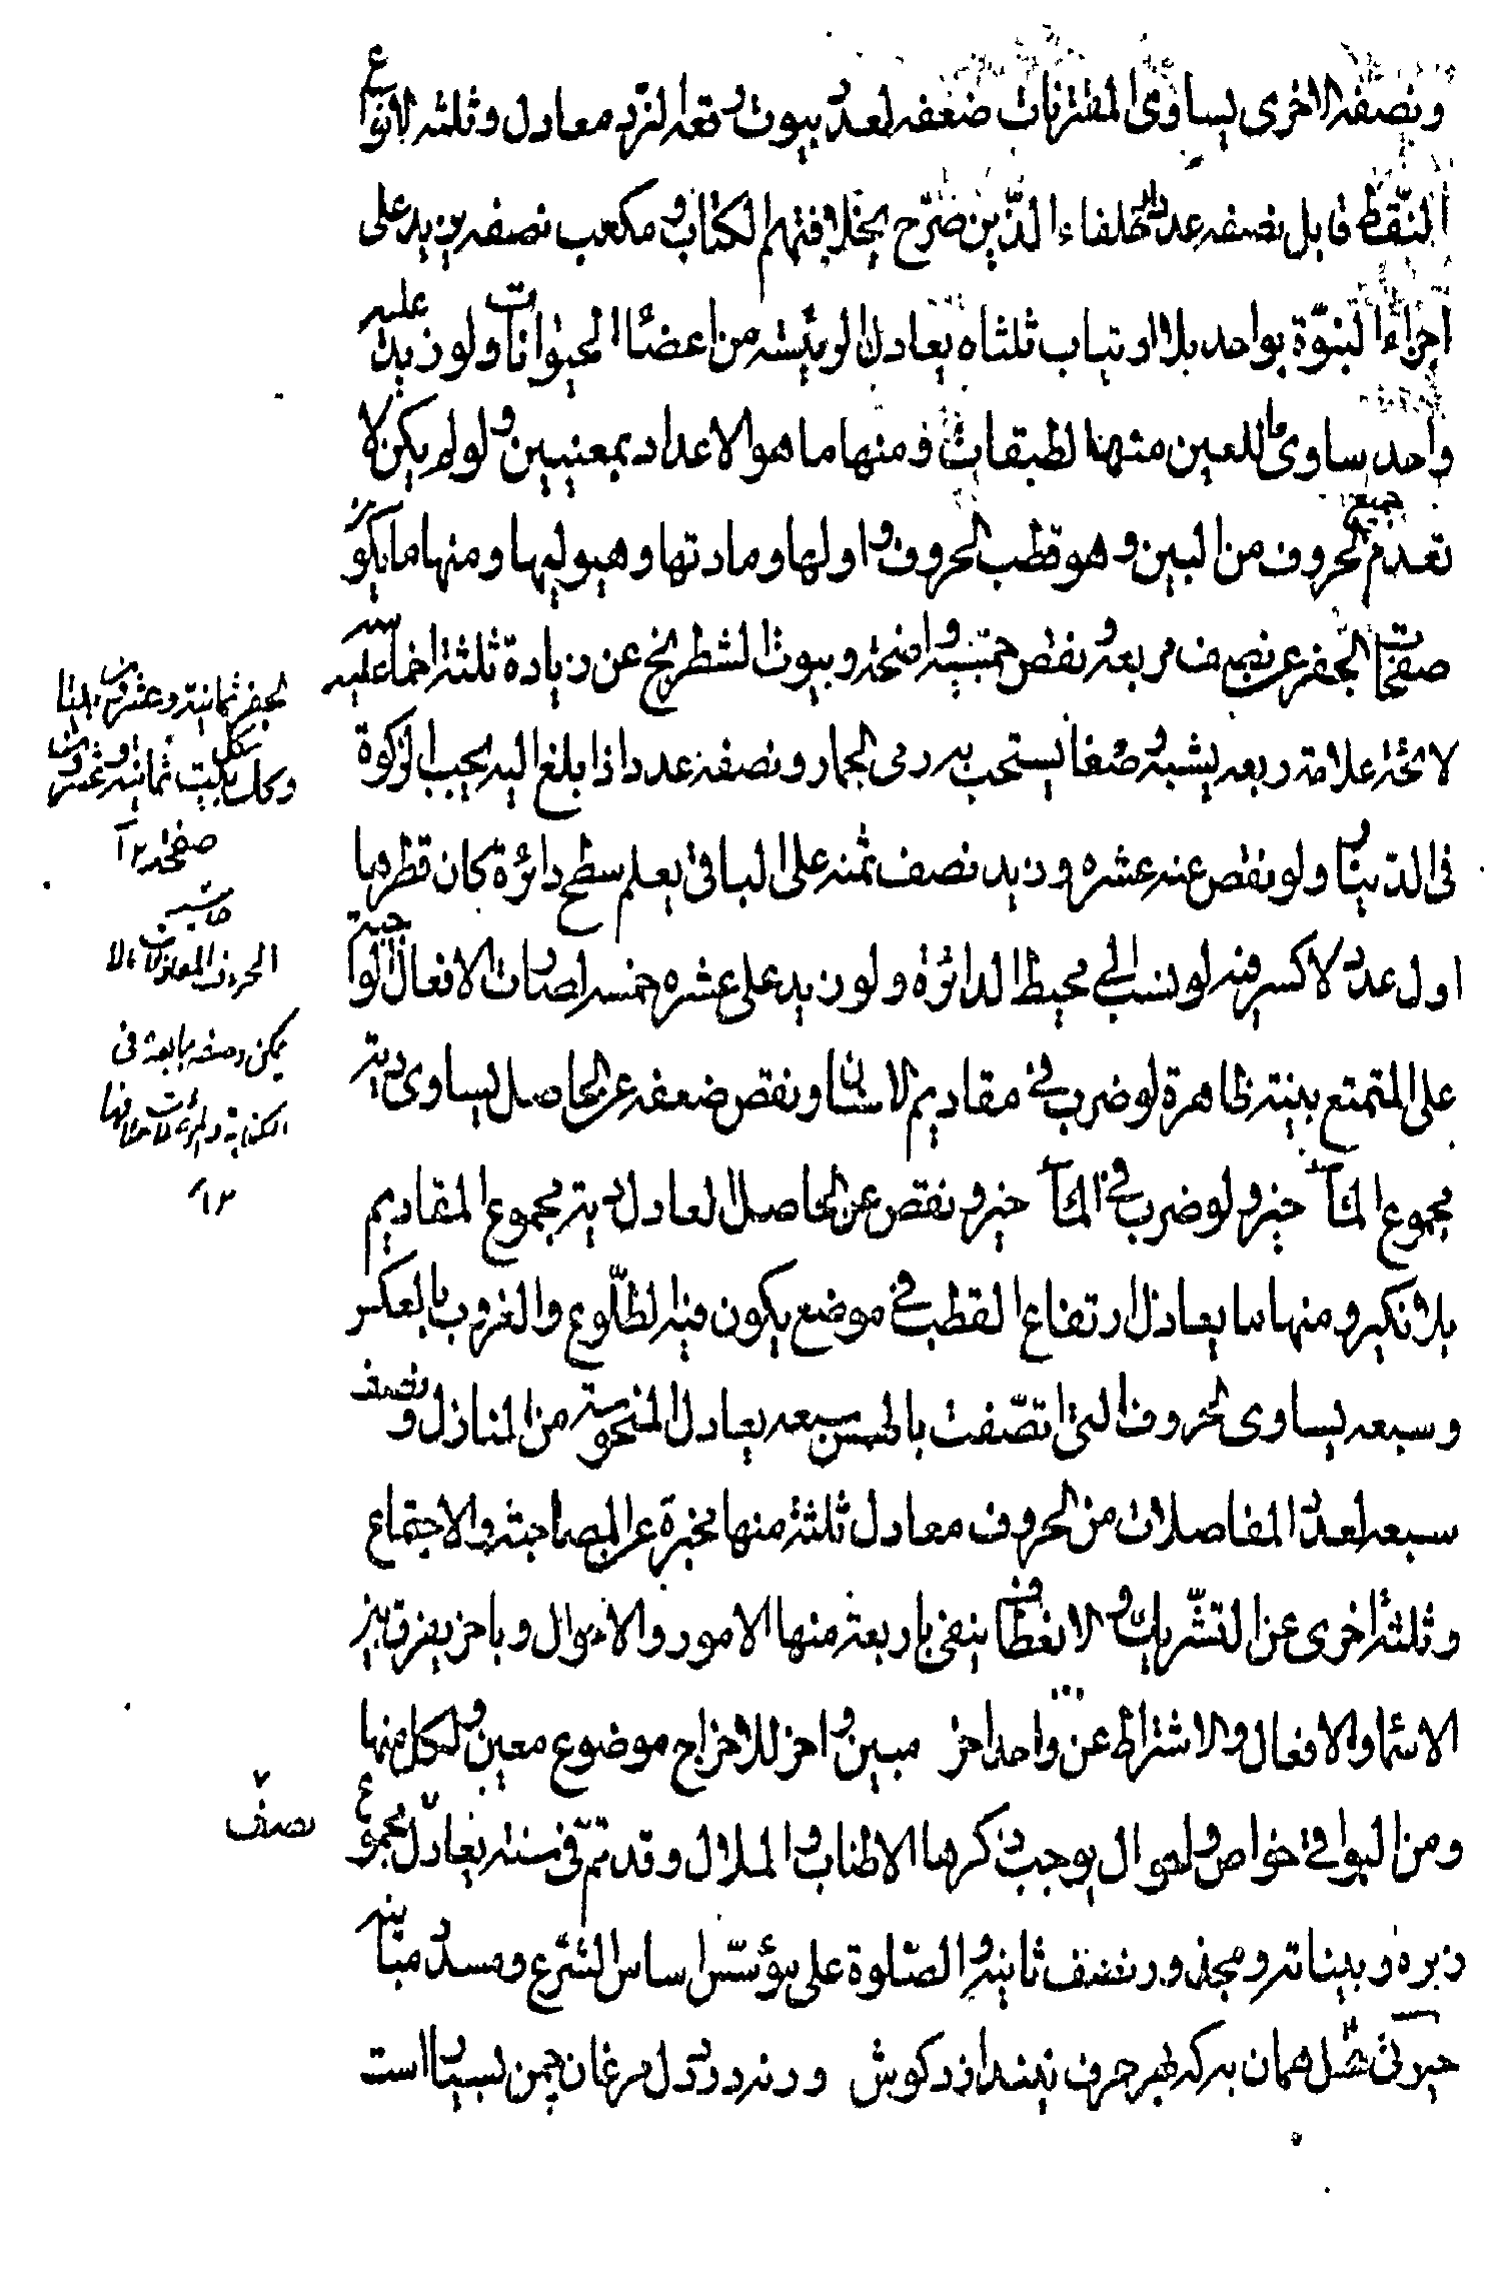 ونصفه الاخرى يساوى المقترنات ضعفه لعدد بيوت رقعة النرد معادل وثلثه لانواع
النقط قابل نصفه عدد الخلفاء الذين صرح بخلافتهم الكتاب ومكعب نصفه يزيد على
اجزاء النبوة بواحد بلا ارتياب ثلثاه يعادل الرئيسة من اعضاء الحيوانات ولو زيد عليه
واحد ساوى ما للعين منها الطبقات ومنها ما هو الاعداد بمعنيين ولو لم يكن لا
نعدم جميع الحروف من البين وهو قطب الحروف واولها ومادتها وهيوليها ومنها ما يكون
صفحات الجفر عن نصف مربعه ونقص خمسيه واضحة وبيوت الشطرنج عن زيادة ثلثة اخماسه عليه
لائحة علامة ربعه يشبه وضعا يستحب به رمى الجمار ونصفه عدد اذا بلغ اليه يجب الزكوة
فى الدينار ولو نقص عنه عشره وزيد نصف ثمنه على الباقى يعلم سطح دائرة كان قطرها
اول عدد لا كسر فيه لو نسب الى محيط الدائرة ولو زيد على عشره خمسه لصارت الافعال الواجبة
على المتمتع بينة ظاهرة لو ضرب فى مقاديم الاسنان ونقص ضعفه عن الحاصل يساوى دية
مجموع المآخير ولو ضرب فى المآخير ونقص عن الحاصل لعادل دية مجموع المقاديم
بلا نكير ومنها ما يعادل ارتفاع القطب فى موضع يكون فيه الطلوع والغروب بالعكس
وسبعه يساوى الحروف التى اتصفت بالهمس سبعه يعادل المنحوسة من المنازل ونصف
سبعه لعدد المفاصلات من الحروف معادل ثلثة منها مخبرة عن المصاحبة والاجتماع
وثلثة اخرى عن التشريك والانعطاف ينفى باربعة منها الامور والاحوال وباخر يفرق بين
الاسماء والافعال والاشتراط عن واحد اخر مبين واخر للاخراج موضوع معين ولكل منها
ومن البواقى خواص واحوال يوجب ذكرها الاطناب والملال وقد تم فى سنة يعادل مجموع
زبره وبيناته ومجذور نصف ثانيه والصلوة على مؤسس اساس الشرع ومسدد مبانيه
حيرتى همان به كه بهر حرف نيندازد كوش ورنه درد دل مرغان چمن بسيار است
الجفر ثمانية وعشرون بيتا
وكل بيت ثمانية وعشرون
صفحة ١٢
حاشيه
يمكن وصفه بما بعد فى
١٢
نصف